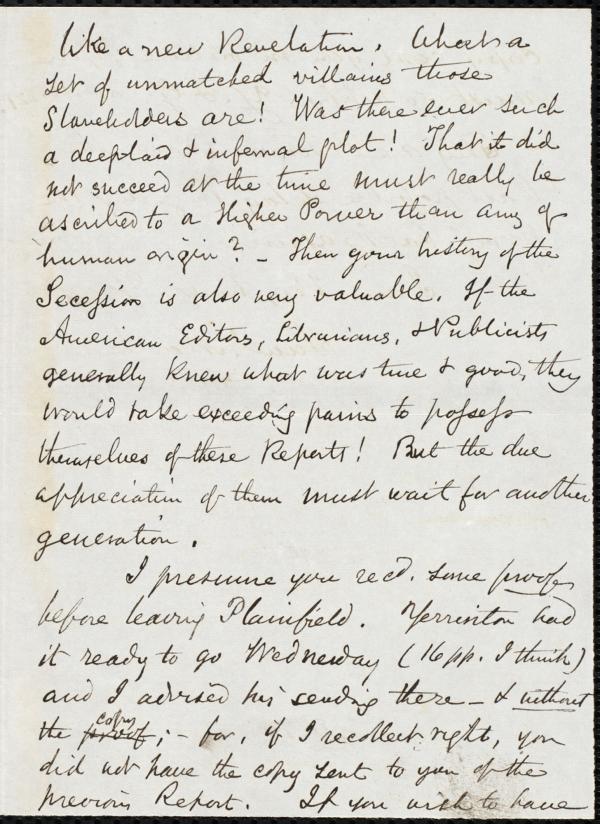 like a new Revelation. What a
set of unmatched villains those
Slaveholders are! Was there ever such
a deeplaid & infernal plot! That it did
not succeed at the time must really be
ascribed to a Higher Power than any of
human origin? - Then your history of the
Secession is also very valuable. If the
American Editors, Librarians, & Publicists
generally knew what was true & good, they
would take exceeding pains to possess
themselves of these Reports! But the due
appreciation of them must wait for another
generation.
I presume you recd. some proofs
before leaving Plainfield. Yerrinton had
it ready to go Wednesday (16 pp. I think)
and I advised his sending there - & without
the proof copy; - for, if I recollect right, you
did not have the copy sent to you of the
previous Report. If you wish to have